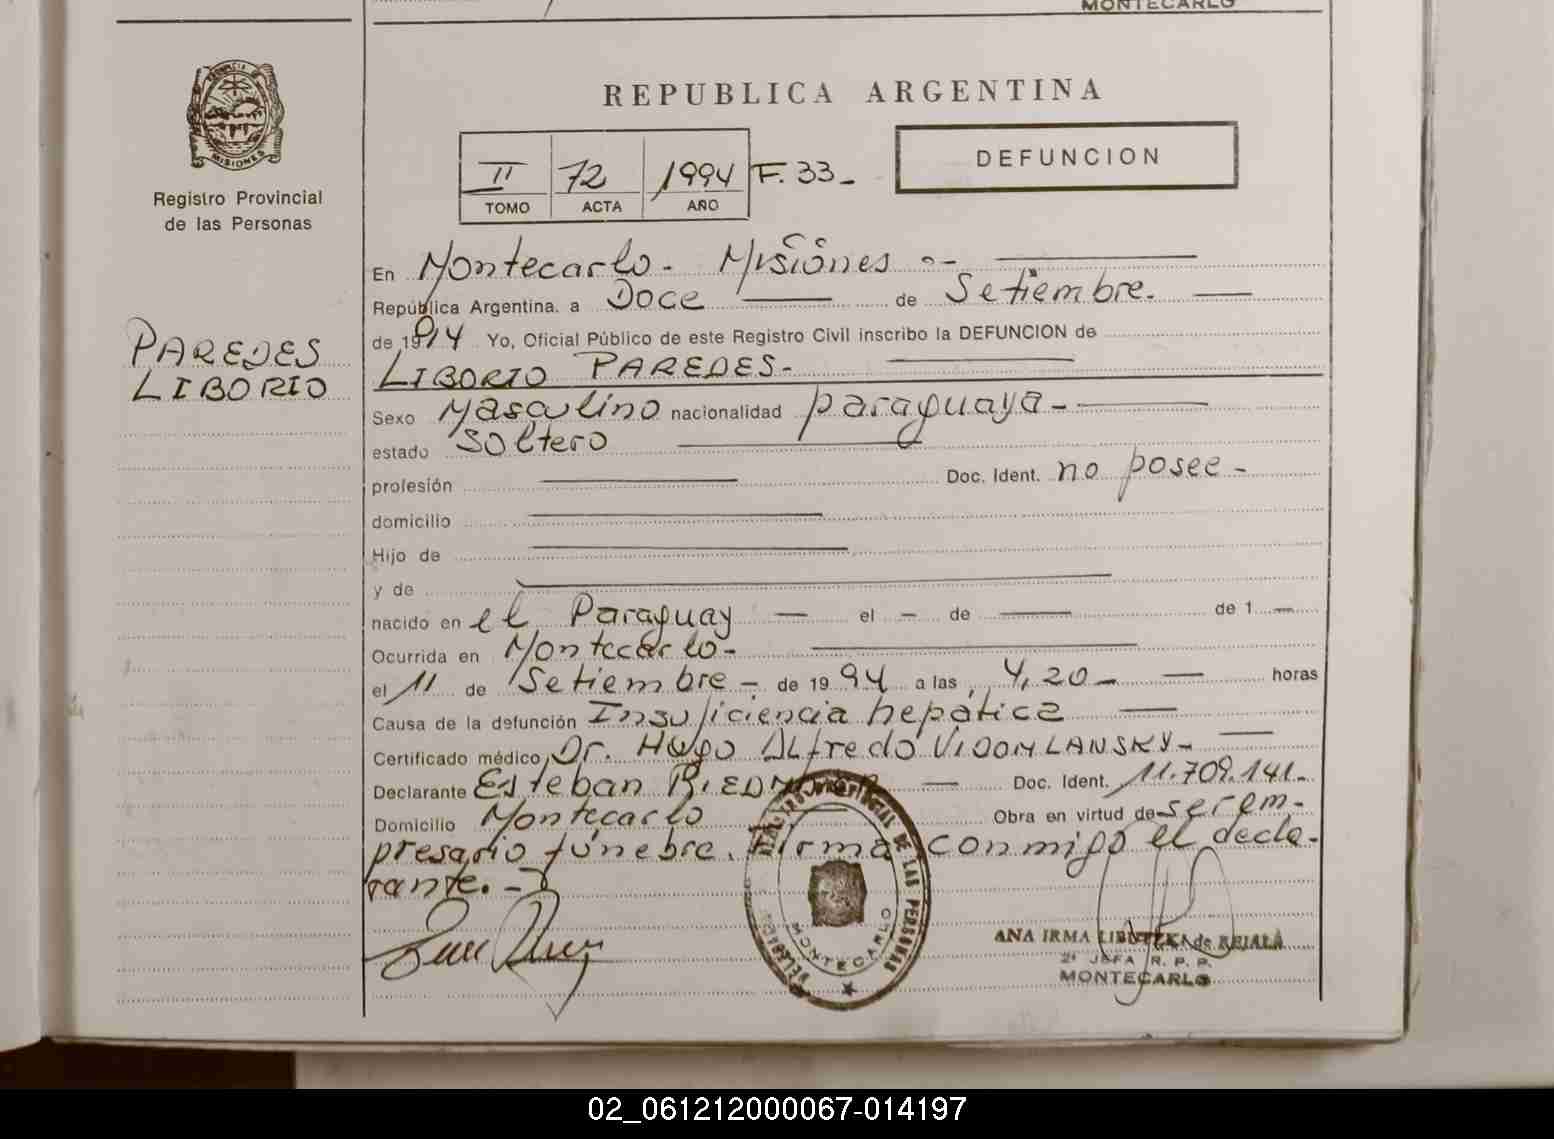 MONTECARLO
PROVINCIA DE
MISIONES
Registro Provincial
de las Personas
PAREDES
LIBORIO
REPUBLICA ARGENTINA
II 72 1994 F. 33-
TOMO ACTA AÑO
DEFUNCION
En Montecarlo- Misiones
República Argentina. a Doce de Setiembre.
de 1994 Yo, Oficial Público de este Registro Civil inscribo la DEFUNCION de
LIBORIO PAREDES-
Sexo Masculino nacionalidad paraguaya-
estado soltero
profesión Doc. Ident. no posee-
domicilio
Hijo de
y de
nacido en el Paraguay — el — de — de 1 —
Ocurrida en Montecarlo-
el 11 de Setiembre - de 1994 a las 4,20- horas
Causa de la defunción Insuficiencia hepática
Certificado médico Dr. Hugo ALfredo VIDOMLANSKY-
Declarante Esteban Doc. Ident. 11.709.141-
Domicilio Montecarlo Obra en virtud de ser em-
presario fúnebre. Firma conmigo el decla-
rante.-
DE LAS PERSONAS
MONTECARLO
ANA IRMA de REJALA
2ª JEFA R. P. P.
MONTECARLO
02_061212000067-014197